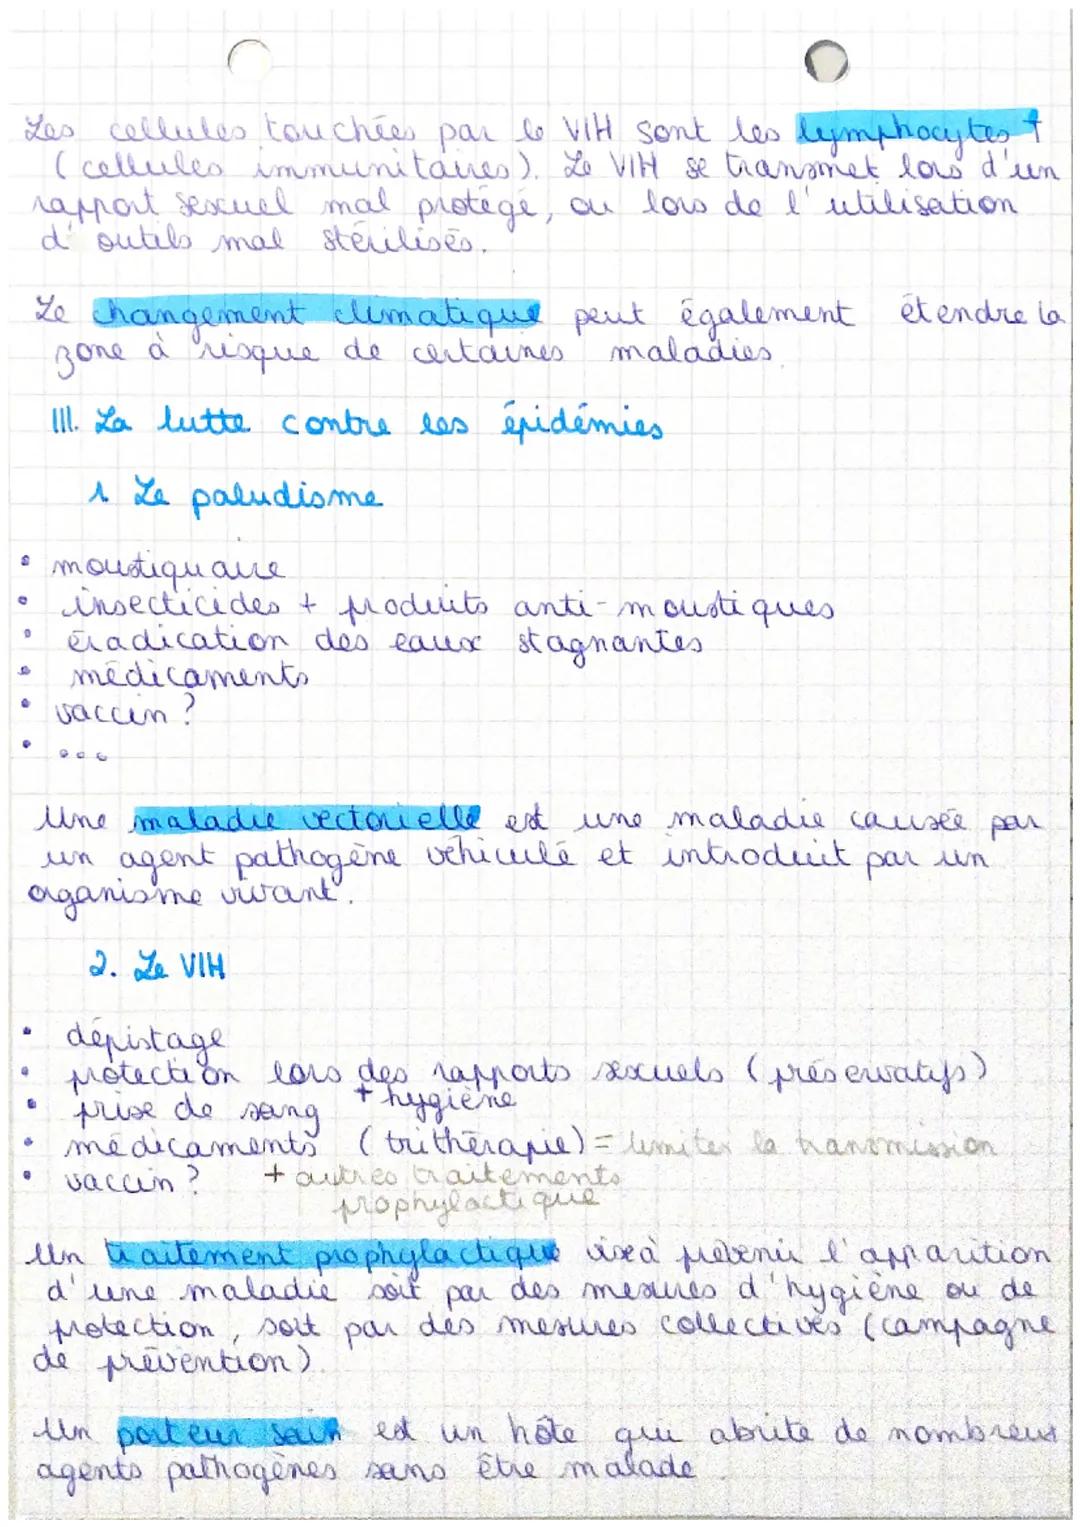 Les cellules touchées par le VIH sont les lymphocytes T
(cellules immunitaires). Le VIH se transmet lors d'un
rapport sexuel mal protégé, ou lors de l'utilisation
d'outils mal stérilisés.
Le changement climatique peut également étendre la
zone à risque de certaines maladies.
III. La lutte contre les épidémies
1. Le paludisme
• moustiquaire
• insecticides + produits anti-moustiques
• éradication des eaux stagnantes
• médicaments
• vaccin ?
• ...
Une maladie vectorielle est une maladie causée par
un agent pathogène véhiculé et introduit par un
organisme vivant.
2. Le VIH
• dépistage
• protection lors des rapports sexuels (préservatifs)
• prise de sang + hygiène
• médicaments (trithérapie) = limiter la transmission
• vaccin ? + autres traitements
prophylactique
Un traitement prophylactique vise à prévenir l'apparition
d'une maladie soit par des mesures d'hygiène ou de
protection, soit par des mesures collectives (campagne
de prévention).
Un porteur sain est un hôte qui abrite de nombreux
agents pathogènes sans être malade.